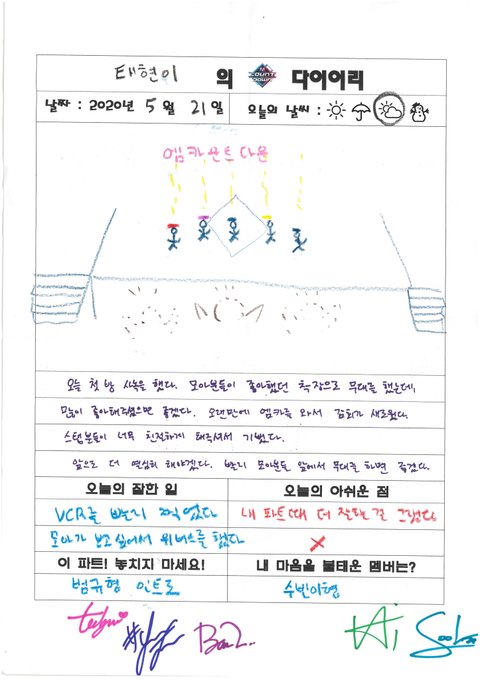 태현이 의 M COUNT DOWN 다이어리
날짜 : 2020년 5월 21일 오늘의 날씨 :
엠카운트다운
오늘 첫 방 사녹을 했다. 모아분들이 좋아했던 착장으로 무대를 했는데,
많이 좋아해주셨으면 좋겠다. 오랜만에 엠카를 와서 감회가 새로웠다.
스텝분들이 너무 친절하게 대해주셔서 기뻤다.
앞으로 더 열심히 해야겠다. 빨리 모아분들 앞에서 무대를 하면 좋겠다.
오늘의 잘한 일 오늘의 아쉬운 점
VCR을 빨리 찍었다 내 파트때 더 잘할 걸 그랬다
모아가 보고싶어서 위버스를 했다 X
이 파트! 놓치지 마세요! 내 마음을 불태운 멤버는?
범규형 인트로 수빈이형